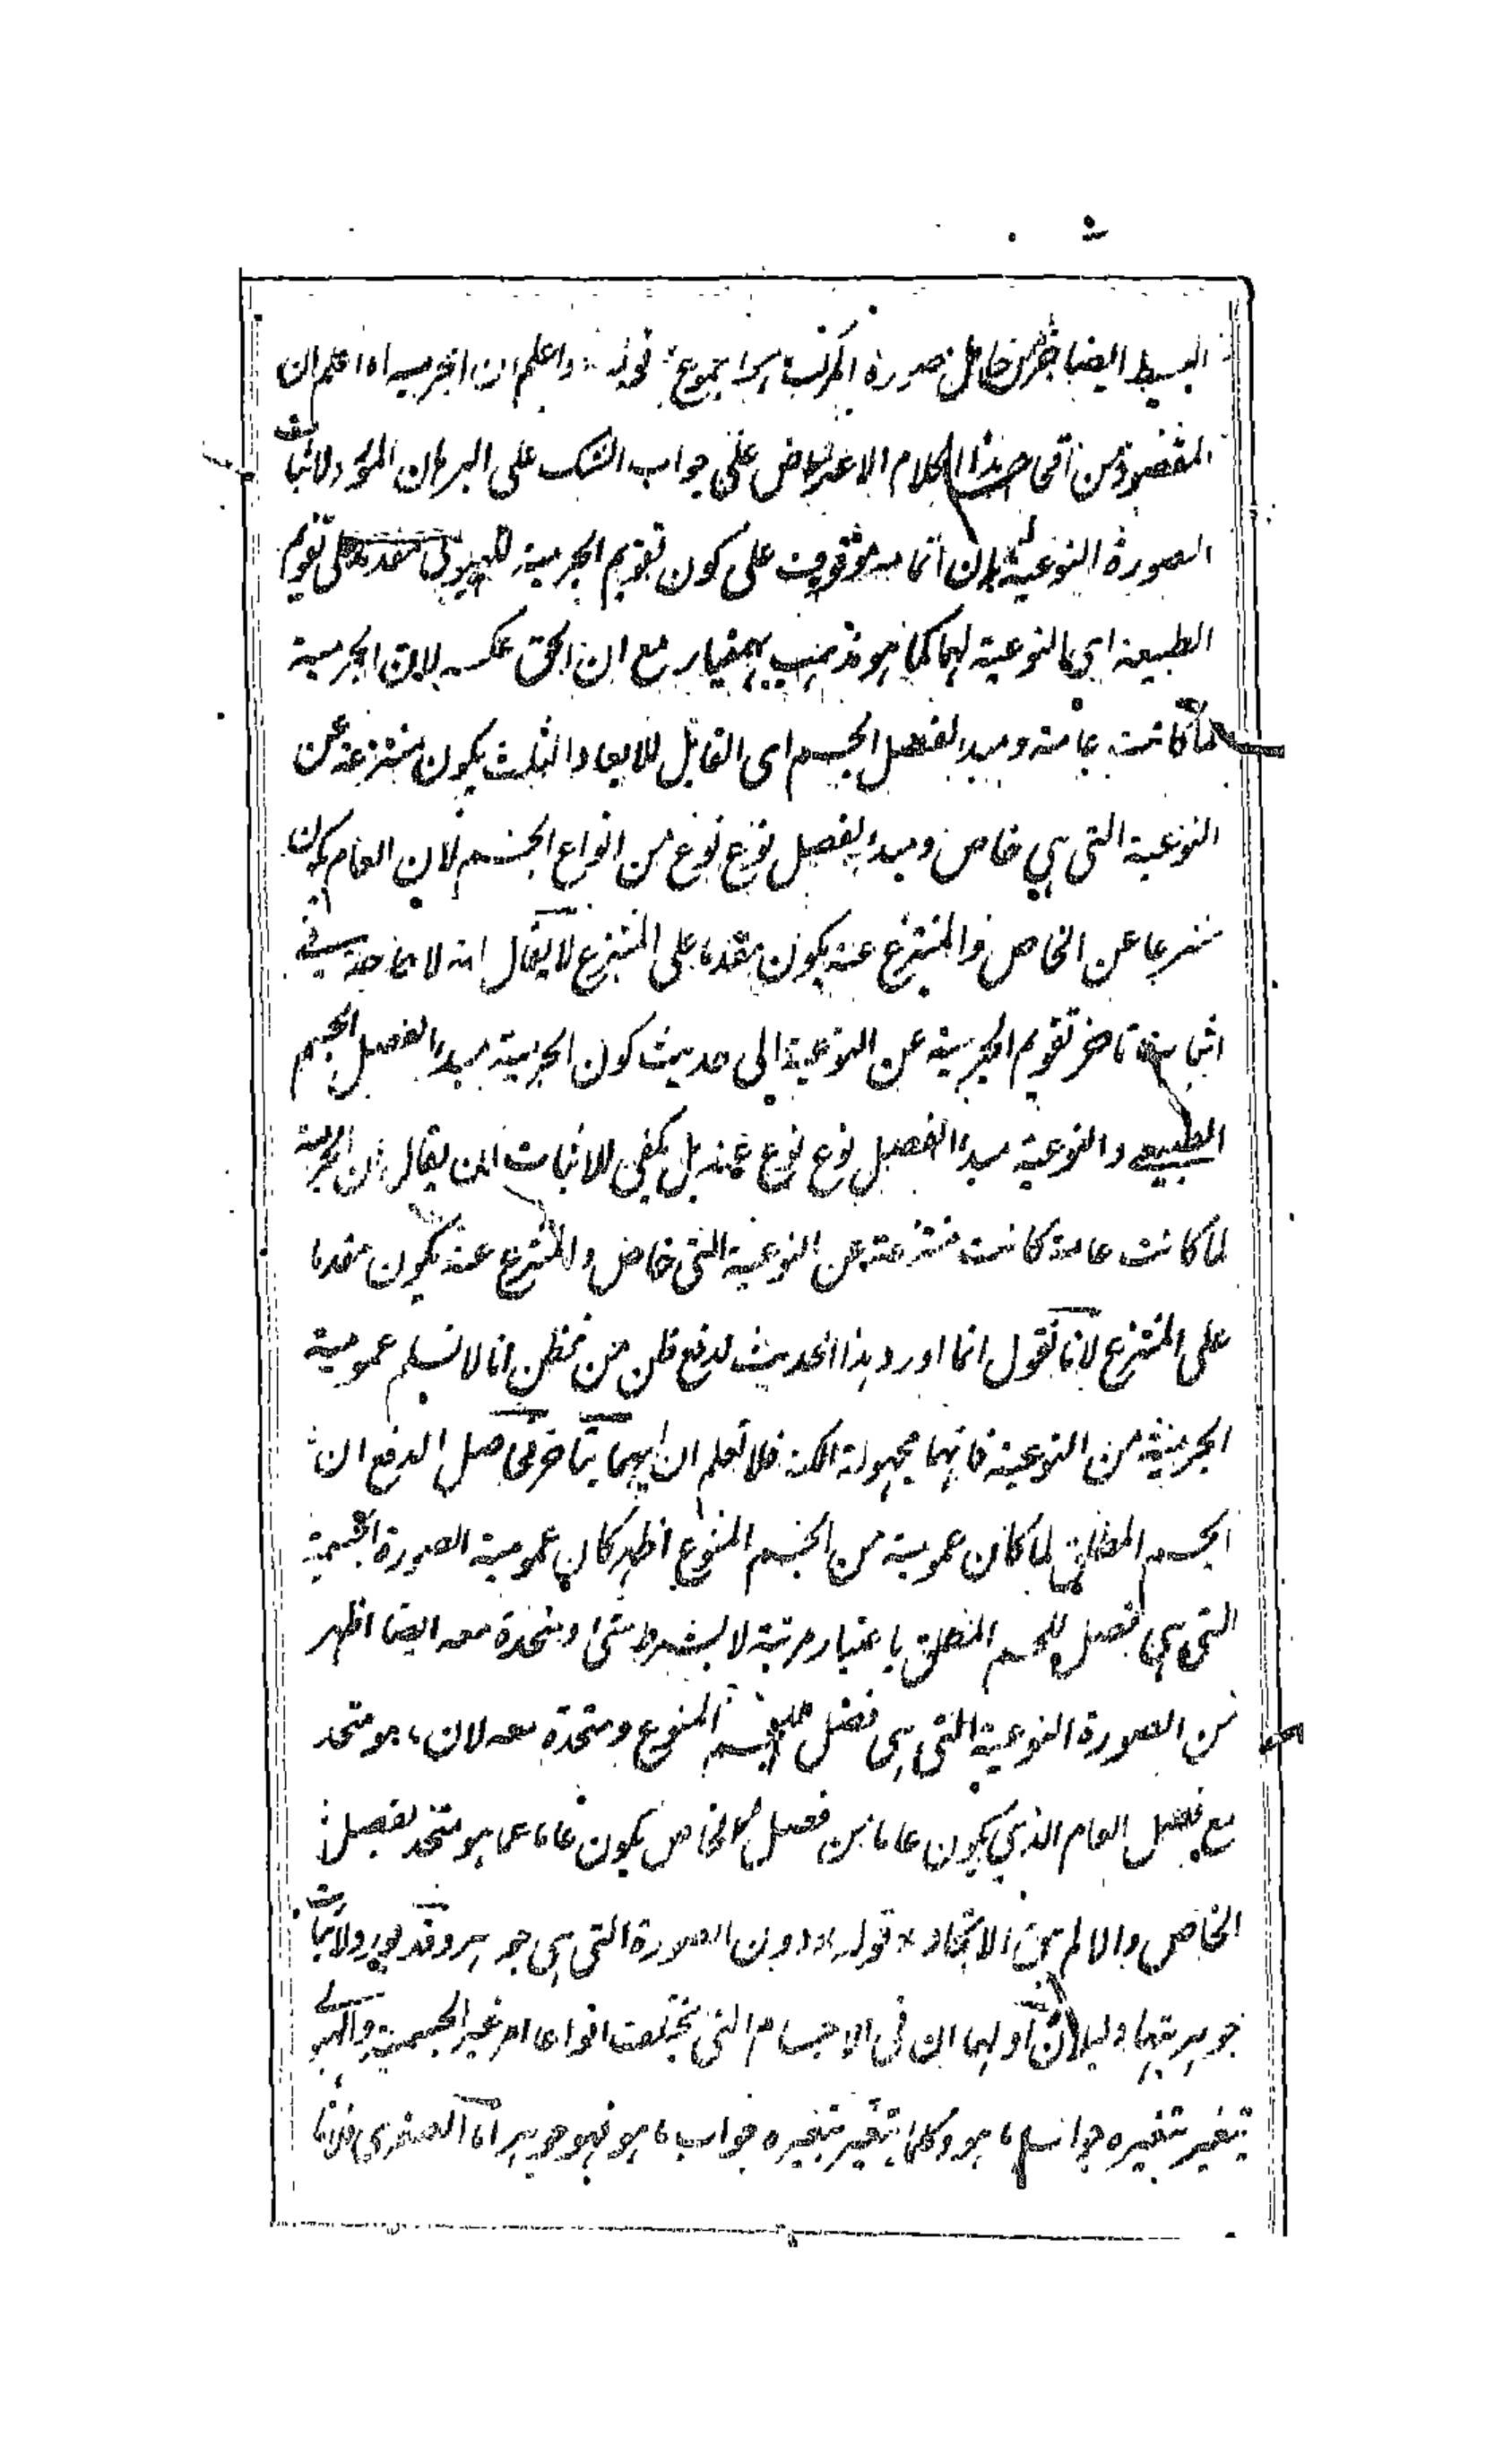 البسيط ايضا جزء من حامل صورة المركب لا المجموع قوله واعلم ان الجرمية اه اعلم ان
المقصود من اقحام هذا الكلام الاعتراض على جواب الشك على البرهان المورد لاثبات
الصورة النوعية بان اتمامه موقوف على كون تقويم الجرمية للهيولى مقدما على تقويم
الطبيعة اى النوعية لها كما هو مذهب بهمنيار مع ان الحق عكسه لان الجرمية
لما كانت عامة ومبدء لفصل الجسم اى القابل للابعاد الثلث يكون منتزعة عن
النوعية التى هى خاص ومبدء لفصل نوع نوع من انواع الجسم لان العام يكون
منتزعا عن الخاص والمنتزع عنه يكون مقدما على المنتزع لا يقال انه لا حاجة فى
اثبات تاخر تقويم الجرمية عن النوعية الى حديث كون الجرمية مبدء لفصل الجسم
الطبيعى والنوعية مبدء لفصل نوع نوع منه بل يكفى للاثبات ان يقال ان الجرمية
لما كانت عامة كانت منتزعة عن النوعية التى خاص والمنتزع عنه يكون مقدما
على المنتزع لانا نقول انما اورد هذا الحديث لدفع ظن من يظن انا لا نسلم عمومية
الجرمية من النوعية فانهما مجهولة الكنه فلا نعلم ان ايهما يتاخر فحاصل الدفع ان
الجسم المطلق لما كان عمومية من الجسم المنوع اظهر كان عمومية الصورة الجسمية
التى هى فصل للجسم المطلق باعتبار مرتبة لا بشرط شئ ومتحدة معه ايضا اظهر
من الصورة النوعية التى هى فصل للجسم المنوع ومتحدة معه لان ما هو متحد
مع فصل العام الذى يكون عاما من فصل الخاص يكون عاما عما هو متحد بفصل
الخاص والا لم يكن الاتحاد قوله دون الصورة التى هى جوهر وقد يورد لاثبات
جوهريتها دليلان اولهما ان فى الاجسام التى يختلف انواعا امر غير الجسمية والهيولى
يتغير بتغيره جواب ما هو وكلما يتغير بتغيره جواب ما هو فهو جوهر اما الصغرى فلانا